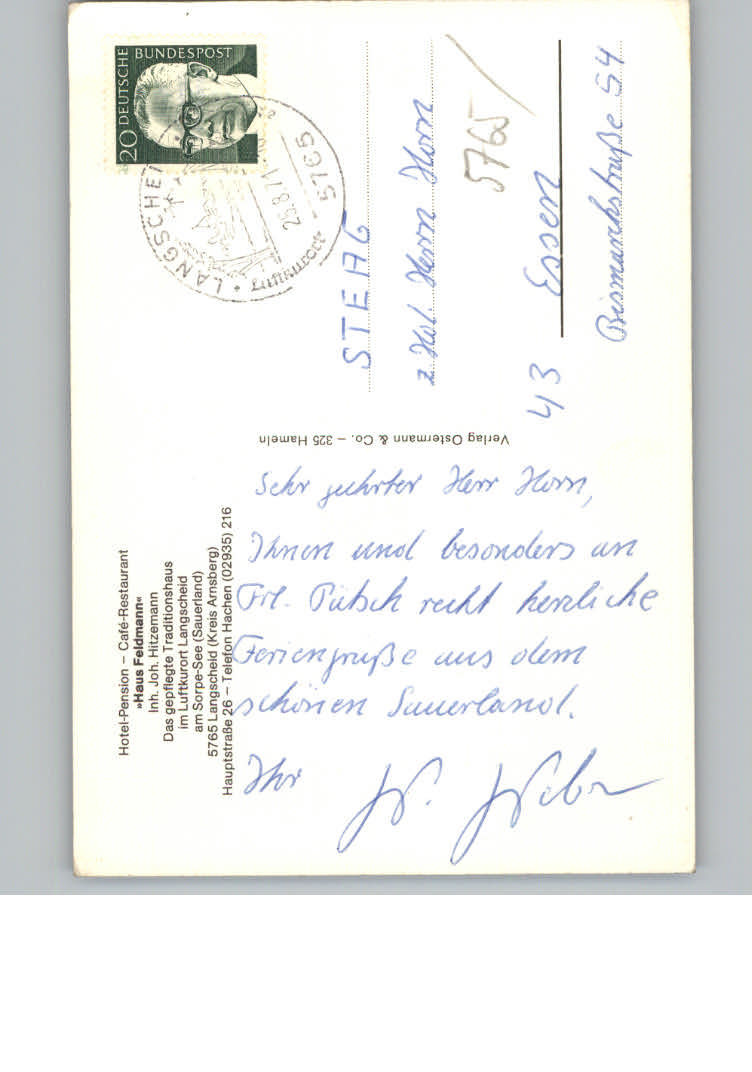 Hotel-Pension – Café-Restaurant
»Haus Feldmann«
Inh. Joh. Hitzemann
Das gepflegte Traditionshaus
im Luftkurort Langscheid
am Sorpe-See (Sauerland)
5765 Langscheid (Kreis Arnsberg)
Hauptstraße 26 – Telefon Hachen (02935) 216
Sehr geehrter Herr Horn,
Ihnen und besonders an
Frl. Pütsch recht herzliche
Feriengrüße aus dem
schönen Sauerland.
Ihr W. Weber
Verlag Ostermann & Co. – 325 Hameln
20 DEUTSCHE BUNDESPOST
LANGSCHEI
5765
25.8.71
Luftkurort
STEAG
z Hd. Herrn Horn
5765
43 Essen
Bismarckstraße 54